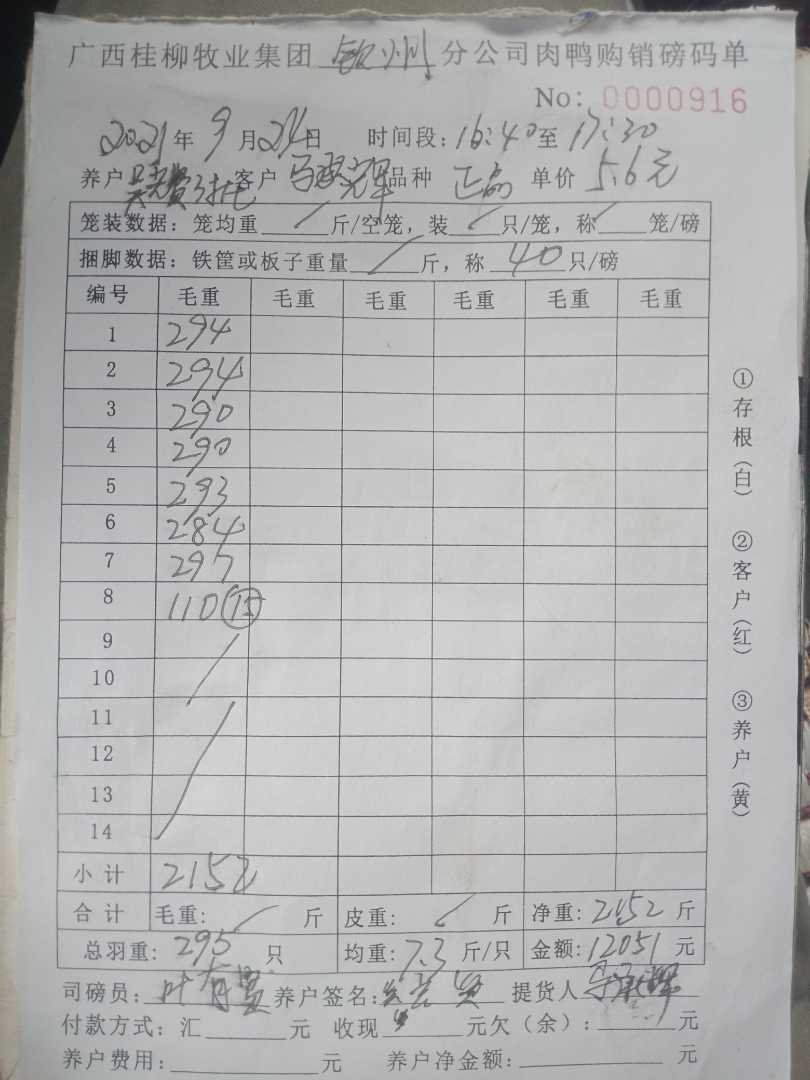 广西桂柳牧业集团 钦州 分公司肉鸭购销磅码单
No: 0000916
2021年 9月24日 时间段: 16:40至17:20
养户 客户 马 品种 正品 单价 5.6元
笼装数据: 笼均重 / 斤/空笼, 装 / 只/笼, 称 / 笼/磅
捆脚数据: 铁筐或板子重量 / 斤, 称 40 只/磅
编号 毛重 毛重 毛重 毛重 毛重 毛重
1 294
2 294
3 290
4 290
5 293
6 284
7 297
8 110 (15)
9
10
11
12
13
14
小计 2152
合计 毛重: / 斤 皮重: / 斤 净重: 2152 斤
总羽重: 295 只 均重: 7.3 斤/只 金额: 12051 元
司磅员: 叶 养户签名: 提货人 马
付款方式: 汇 元 收现 元欠(余): 元
养户费用: 元 养户净金额: 元
①存根(白) ②客户(红) ③养户(黄)